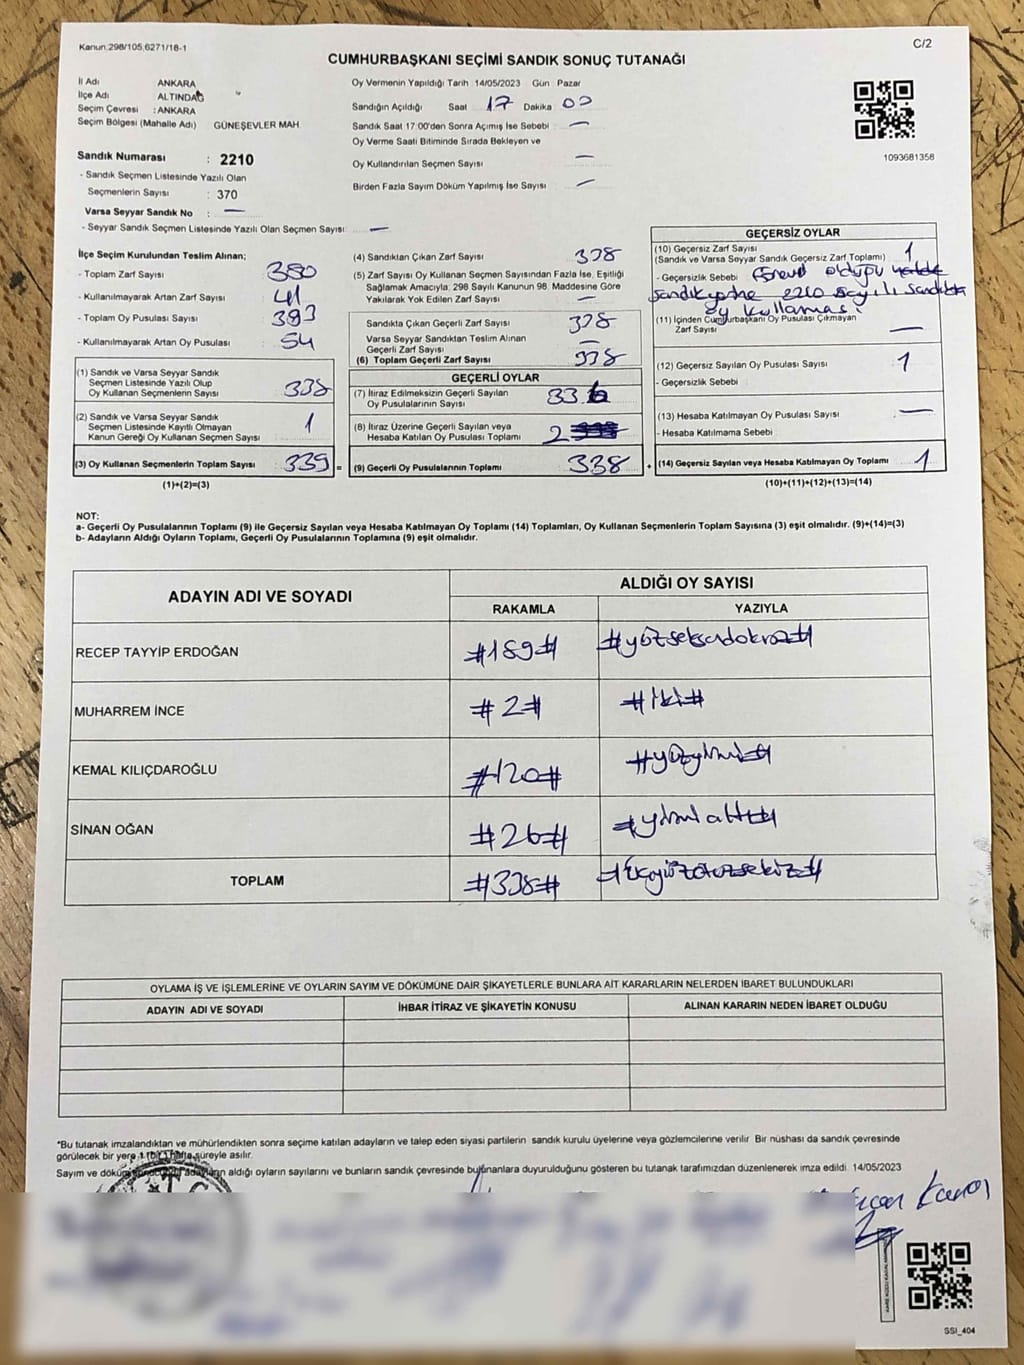 Kanun.298/105,6271/18-1
C/2
CUMHURBAŞKANI SEÇİMİ SANDIK SONUÇ TUTANAĞI
İl Adı ANKARA
İlçe Adı ALTINDAĞ
Seçim Çevresi : ANKARA
Seçim Bölgesi (Mahalle Adı) GÜNEŞEVLER MAH
Sandık Numarası : 2210
- Sandık Seçmen Listesinde Yazılı Olan
Seçmenlerin Sayısı : 370
Varsa Seyyar Sandık No : —
- Seyyar Sandık Seçmen Listesinde Yazılı Olan Seçmen Sayısı: —
Oy Vermenin Yapıldığı Tarih 14/05/2023 Gün Pazar
Sandığın Açıldığı Saat 17 Dakika 00
Sandık Saat 17:00'den Sonra Açımış İse Sebebi —
Oy Verme Saati Bitiminde Sırada Bekleyen ve
Oy Kullandırılan Seçmen Sayısı —
Birden Fazla Sayım Döküm Yapılmış İse Sayısı —
1093681358
İlçe Seçim Kurulundan Teslim Alınan;
- Toplam Zarf Sayısı 380
- Kullanılmayarak Artan Zarf Sayısı 41
- Toplam Oy Pusulası Sayısı 393
- Kullanılmayarak Artan Oy Pusulası 54
(1) Sandık ve Varsa Seyyar Sandık
Seçmen Listesinde Yazılı Olup
Oy Kullanan Seçmenlerin Sayısı 338
(2) Sandık ve Varsa Seyyar Sandık
Seçmen Listesinde Kayıtlı Olmayan
Kanun Gereği Oy Kullanan Seçmen Sayısı 1
(3) Oy Kullanan Seçmenlerin Toplam Sayısı 339 =
(1)+(2)=(3)
(4) Sandıktan Çıkan Zarf Sayısı 338
(5) Zarf Sayısı Oy Kullanan Seçmen Sayısından Fazla İse, Eşitliği
Sağlamak Amacıyla; 298 Sayılı Kanunun 98. Maddesine Göre
Yakılarak Yok Edilen Zarf Sayısı —
Sandıkta Çıkan Geçerli Zarf Sayısı 338
Varsa Seyyar Sandıktan Teslim Alınan
Geçerli Zarf Sayısı —
(6) Toplam Geçerli Zarf Sayısı 338
GEÇERLİ OYLAR
(7) İtiraz Edilmeksizin Geçerli Sayılan
Oy Pusulalarının Sayısı 336
(8) İtiraz Üzerine Geçerli Sayılan veya
Hesaba Katılan Oy Pusulası Toplamı 2
(9) Geçerli Oy Pusulalarının Toplamı 338 +
GEÇERSİZ OYLAR
(10) Geçersiz Zarf Sayısı 1
(Sandık ve Varsa Seyyar Sandık Geçersiz Zarf Toplamı)
- Geçersizlik Sebebi Görevli olduğu
sandık yerine 2210 sayılı sandıkta
oy kullaması.
(11) İçinden Cumhurbaşkanı Oy Pusulası Çıkmayan
Zarf Sayısı —
(12) Geçersiz Sayılan Oy Pusulası Sayısı 1
- Geçersizlik Sebebi
(13) Hesaba Katılmayan Oy Pusulası Sayısı —
- Hesaba Katılmama Sebebi
(14) Geçersiz Sayılan veya Hesaba Katılmayan Oy Toplamı 1
(10)+(11)+(12)+(13)=(14)
NOT:
a- Geçerli Oy Pusulalarının Toplamı (9) ile Geçersiz Sayılan veya Hesaba Katılmayan Oy Toplamı (14) Toplamları, Oy Kullanan Seçmenlerin Toplam Sayısına (3) eşit olmalıdır. (9)+(14)=(3)
b- Adayların Aldığı Oyların Toplamı, Geçerli Oy Pusulalarının Toplamına (9) eşit olmalıdır.
ADAYIN ADI VE SOYADI
ALDIĞI OY SAYISI
RAKAMLA YAZIYLA
RECEP TAYYİP ERDOĞAN #189# #yüzseksendokuz#
MUHARREM İNCE #2# #iki#
KEMAL KILIÇDAROĞLU #120# #yüzyirmi#
SİNAN OĞAN #26# #yirmialtı#
TOPLAM #338# #üçyüzotuzsekiz#
OYLAMA İŞ VE İŞLEMLERİNE VE OYLARIN SAYIM VE DÖKÜMÜNE DAİR ŞİKAYETLERLE BUNLARA AİT KARARLARIN NELERDEN İBARET BULUNDUKLARI
ADAYIN ADI VE SOYADI İHBAR İTİRAZ VE ŞİKAYETİN KONUSU ALINAN KARARIN NEDEN İBARET OLDUĞU
*Bu tutanak imzalandıktan ve mühürlendikten sonra seçime katılan adayların ve talep eden siyasi partilerin sandık kurulu üyelerine veya gözlemcilerine verilir. Bir nüshası da sandık çevresinde
görülecek bir yere 1 (bir) hafta süreyle asılır.
Sayım ve döküm adayların aldığı oyların sayılarını ve bunların sandık çevresinde bulunanlara duyurulduğunu gösteren bu tutanak tarafımızdan düzenlenerek imza edildi. 14/05/2023
SSI_404